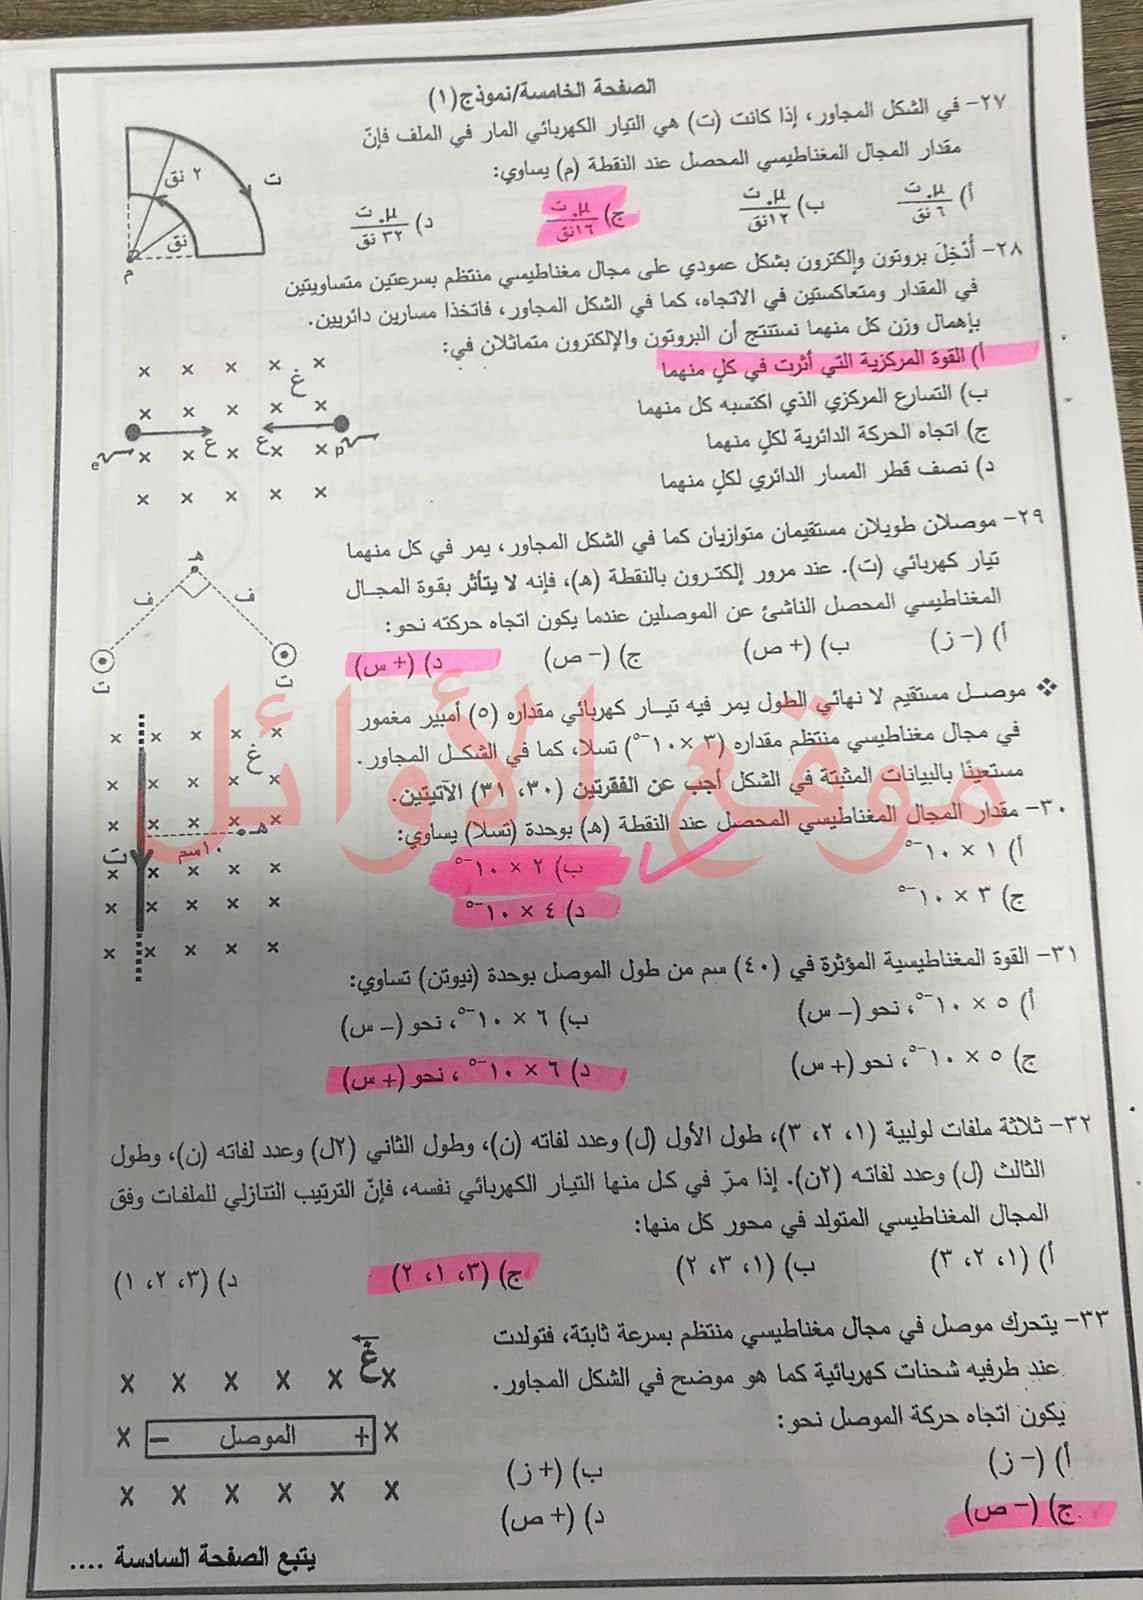 الصفحة الخامسة/نموذج(١)
٢٧- في الشكل المجاور، إذا كانت (ت) هي التيار الكهربائي المار في الملف فإنّ
مقدار المجال المغناطيسي المحصل عند النقطة (م) يساوي:
أ) μ. ت / ٦ نق ب) μ. ت / ١٢نق ج) μ. ت / ١٦نق د) μ. ت / ٣٢ نق
ت
٢ نق
نق
م
٢٨- أُدْخِلَ بروتون وإلكترون بشكل عمودي على مجال مغناطيسي منتظم بسرعتين متساويتين
في المقدار ومتعاكستين في الاتجاه، كما في الشكل المجاور، فاتخذا مسارين دائريين.
بإهمال وزن كل منهما نستنتج أن البروتون والإلكترون متماثلان في:
أ) القوة المركزية التي أثرت في كلٍ منهما
ب) التسارع المركزي الذي اكتسبه كل منهما
ج) اتجاه الحركة الدائرية لكلٍ منهما
د) نصف قطر المسار الدائري لكلٍ منهما
× × × × ×
غ
× × × × ×
e ع ع p
× × × × ×
× × × × ×
٢٩- موصلان طويلان مستقيمان متوازيان كما في الشكل المجاور، يمر في كل منهما
تيار كهربائي (ت). عند مرور إلكترون بالنقطة (هـ)، فإنه لا يتأثر بقوة المجال
المغناطيسي المحصل الناشئ عن الموصلين عندما يكون اتجاه حركته نحو:
أ) (– ز) ب) (+ ص) ج) (– ص) د) (+ س)
هـ
ف ف
ت ت
❖ موصل مستقيم لا نهائي الطول يمر فيه تيار كهربائي مقداره (٥) أمبير مغمور
في مجال مغناطيسي منتظم مقداره (٣ × ١٠⁻⁵) تسلا، كما في الشكل المجاور.
مستعينًا بالبيانات المثبتة في الشكل أجب عن الفقرتين (٣٠، ٣١) الآتيتين.
٣٠- مقدار المجال المغناطيسي المحصل عند النقطة (هـ) بوحدة (تسلا) يساوي:
أ) ١ × ١٠⁻⁵ ب) ٢ × ١٠⁻⁵
ج) ٣ × ١٠⁻⁵ د) ٤ × ١٠⁻⁵
× × × × ×
غ
× × × × ×
× × × × × هـ
ت ١٠سم
× × × × ×
× × × × ×
× × × × ×
موقع الأوائل
٣١- القوة المغناطيسية المؤثرة في (٤٠) سم من طول الموصل بوحدة (نيوتن) تساوي:
أ) ٥ × ١٠⁻⁵، نحو (– س) ب) ٦ × ١٠⁻⁵، نحو (– س)
ج) ٥ × ١٠⁻⁵، نحو (+ س) د) ٦ × ١٠⁻⁵، نحو (+ س)
٣٢- ثلاثة ملفات لولبية (١، ٢، ٣)، طول الأول (ل) وعدد لفاته (ن)، وطول الثاني (٢ل) وعدد لفاته (ن)، وطول
الثالث (ل) وعدد لفاته (٢ن). إذا مرّ في كل منها التيار الكهربائي نفسه، فإنّ الترتيب التنازلي للملفات وفق
المجال المغناطيسي المتولد في محور كل منها:
أ) (١، ٢، ٣) ب) (١، ٣، ٢) ج) (٣، ١، ٢) د) (٣، ٢، ١)
٣٣- يتحرك موصل في مجال مغناطيسي منتظم بسرعة ثابتة، فتولدت
عند طرفيه شحنات كهربائية كما هو موضح في الشكل المجاور.
يكون اتجاه حركة الموصل نحو:
أ) (– ز) ب) (+ ز)
ج) (– ص) د) (+ ص)
غ
× × × × × ×
× – الموصل + ×
× × × × × ×
يتبع الصفحة السادسة ....